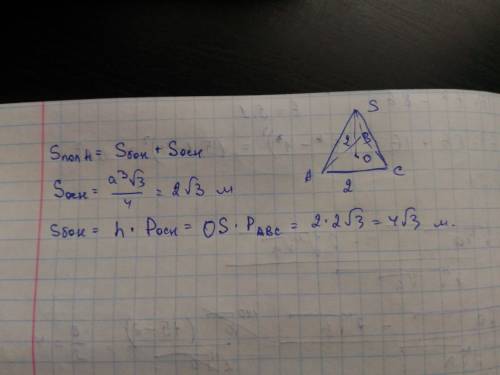 Sполн = Sбок + Sосн
Sосн = a³√3/4 = 2√3 м
Sбок = h · Pосн = OS · P_ABC = 2 · 2√3 = 4√3 м.
S
2
B
O
A
C
2